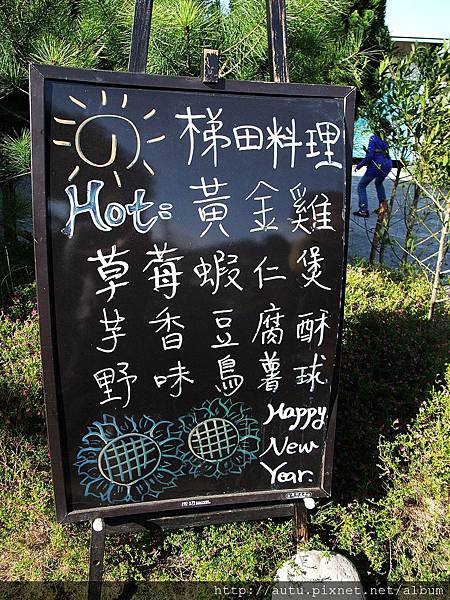 梯田料理
Hot: 黃金雞
草莓蝦仁煲
芋香豆腐酥
野味鳥薯球
Happy
New
Year.
http://autu.pixnet.net/album